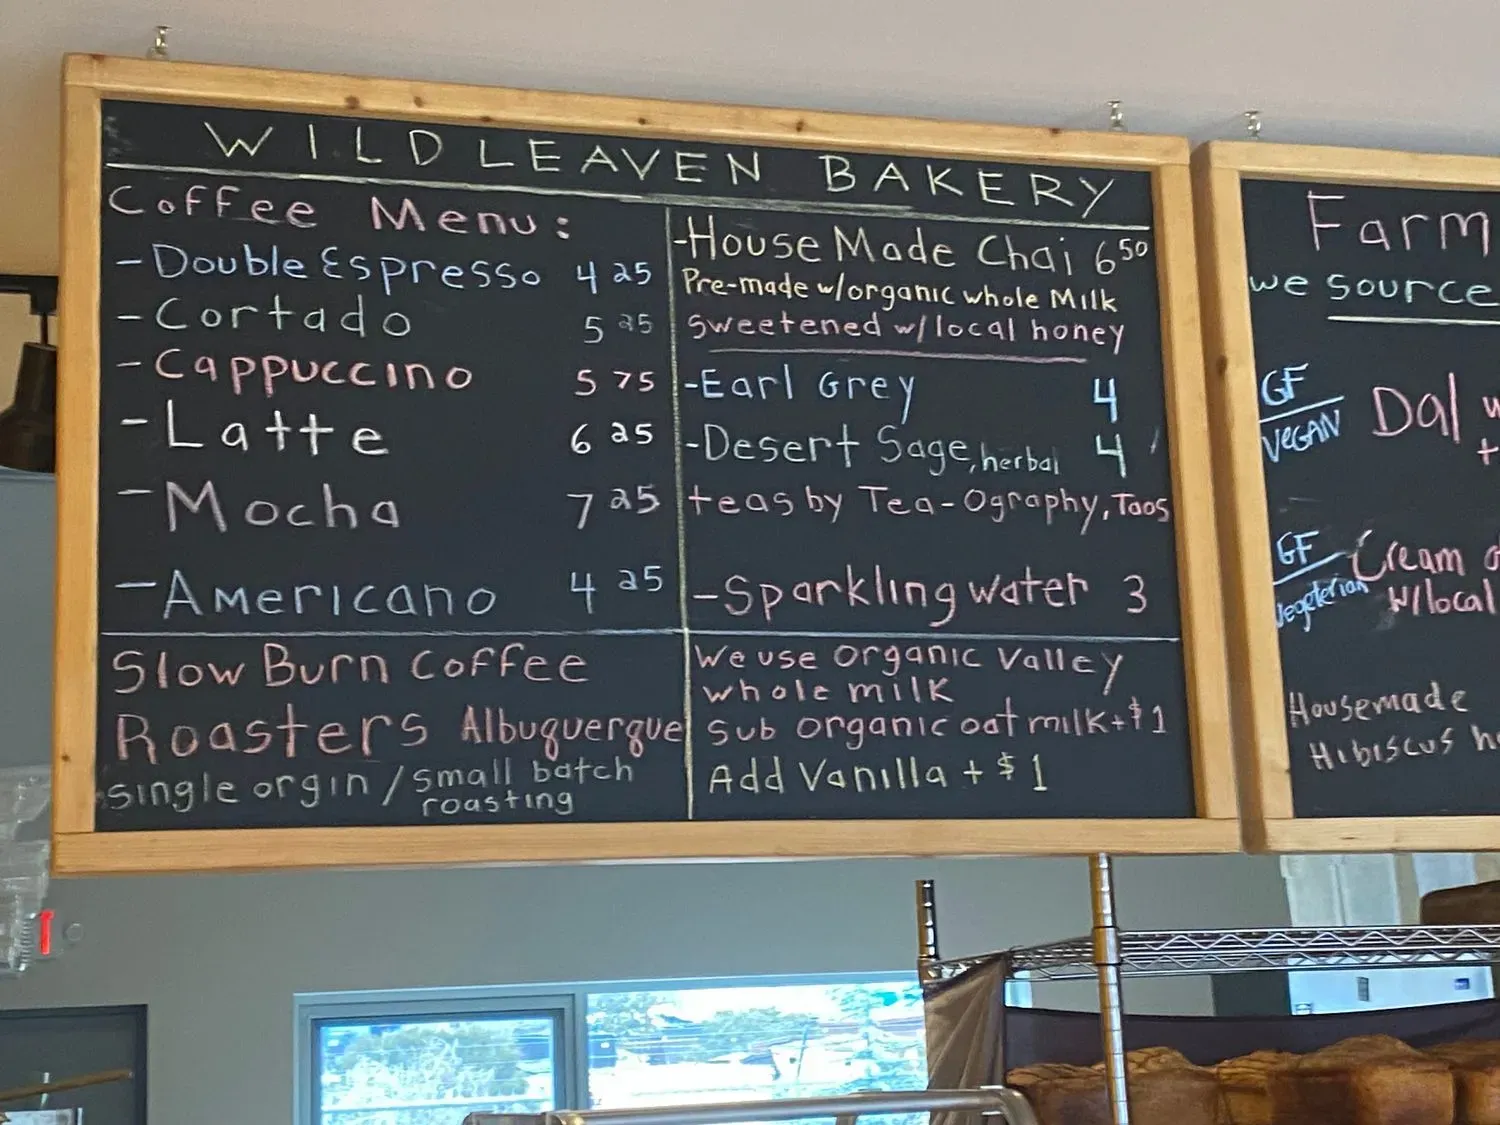 WILD LEAVEN BAKERY
Coffee Menu:
- Double Espresso 4 25
- Cortado 5 25
- Cappuccino 5 75
- Latte 6 25
- Mocha 7 25
- Americano 4 25
Slow Burn Coffee
Roasters Albuquerque
single orgin / small batch
roasting
- House Made Chai 6 50
Pre-made w/organic whole Milk
sweetened w/ local honey
- Earl Grey 4
- Desert Sage, herbal 4
teas by Tea-Ography, Taos
- Sparkling water 3
We use organic valley
whole milk
Sub organic oat milk + $1
Add Vanilla + $1
Farm
we source
GF
VEGAN
Dal
GF
Vegeterian
Cream
w/local
Housemade
Hibiscus